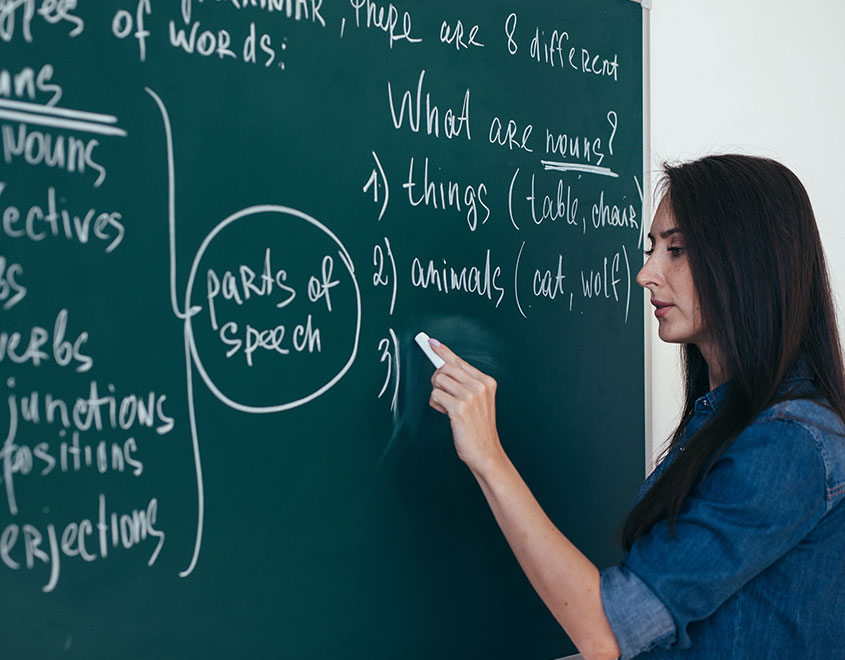 , there are 8 different
ypes of words:
uns
Nouns
jectives
bs
verbs
junctions
positions
erjections
parts of
speech
What are nouns?
1) things (table, chair)
2) animals (cat, wolf)
3)